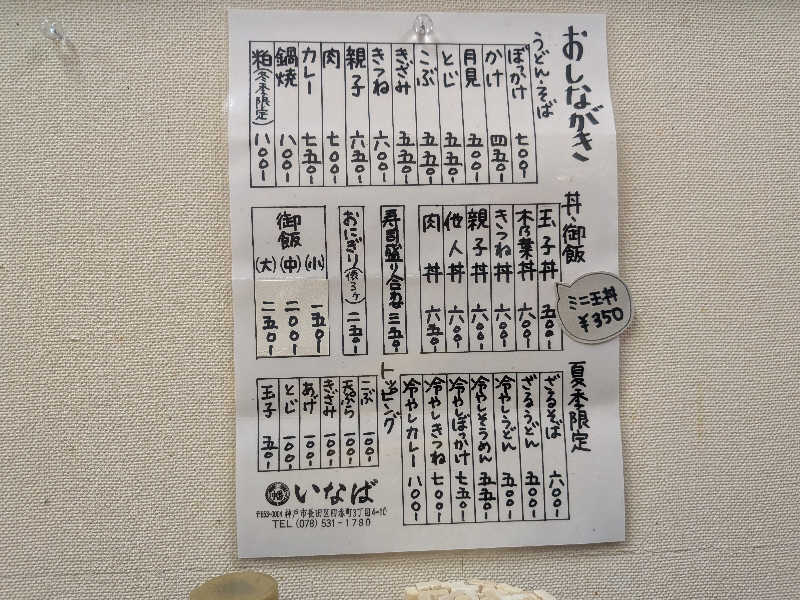 おしながき
うどん・そば
ぼっかけ 七〇〇-
かけ 四五〇-
月見 五〇〇-
とじ 五五〇-
こぶ 五五〇-
きざみ 五五〇-
きつね 六〇〇-
親子 六五〇-
肉 七〇〇-
カレー 七五〇-
鍋焼 八〇〇-
粕(冬季限定) 八〇〇-
丼・御飯
玉子丼 五〇〇-
ミニ玉丼
¥350
木の葉丼 六〇〇-
きつね丼 六〇〇-
親子丼 六〇〇-
他人丼 六〇〇-
肉丼 六五〇-
寿司盛り合わせ 三五〇-
おにぎり(俵3ヶ) 二五〇-
御飯
(小) 一五〇-
(中) 二〇〇-
(大) 二五〇-
夏季限定
ざるそば 六〇〇-
ざるうどん 五〇〇-
冷やしうどん 五〇〇-
冷やしそうめん 五五〇-
冷やしぼっかけ 七五〇-
冷やしきつね 七〇〇-
冷やしカレー 八〇〇-
トッピング
こぶ 一〇〇-
天ぷら 一〇〇-
きざみ 一〇〇-
あげ 一〇〇-
とじ 一〇〇-
玉子 五〇-
いなば
〒653-0004 神戸市長田区四番町3丁目4-10
TEL (078) 531-1780